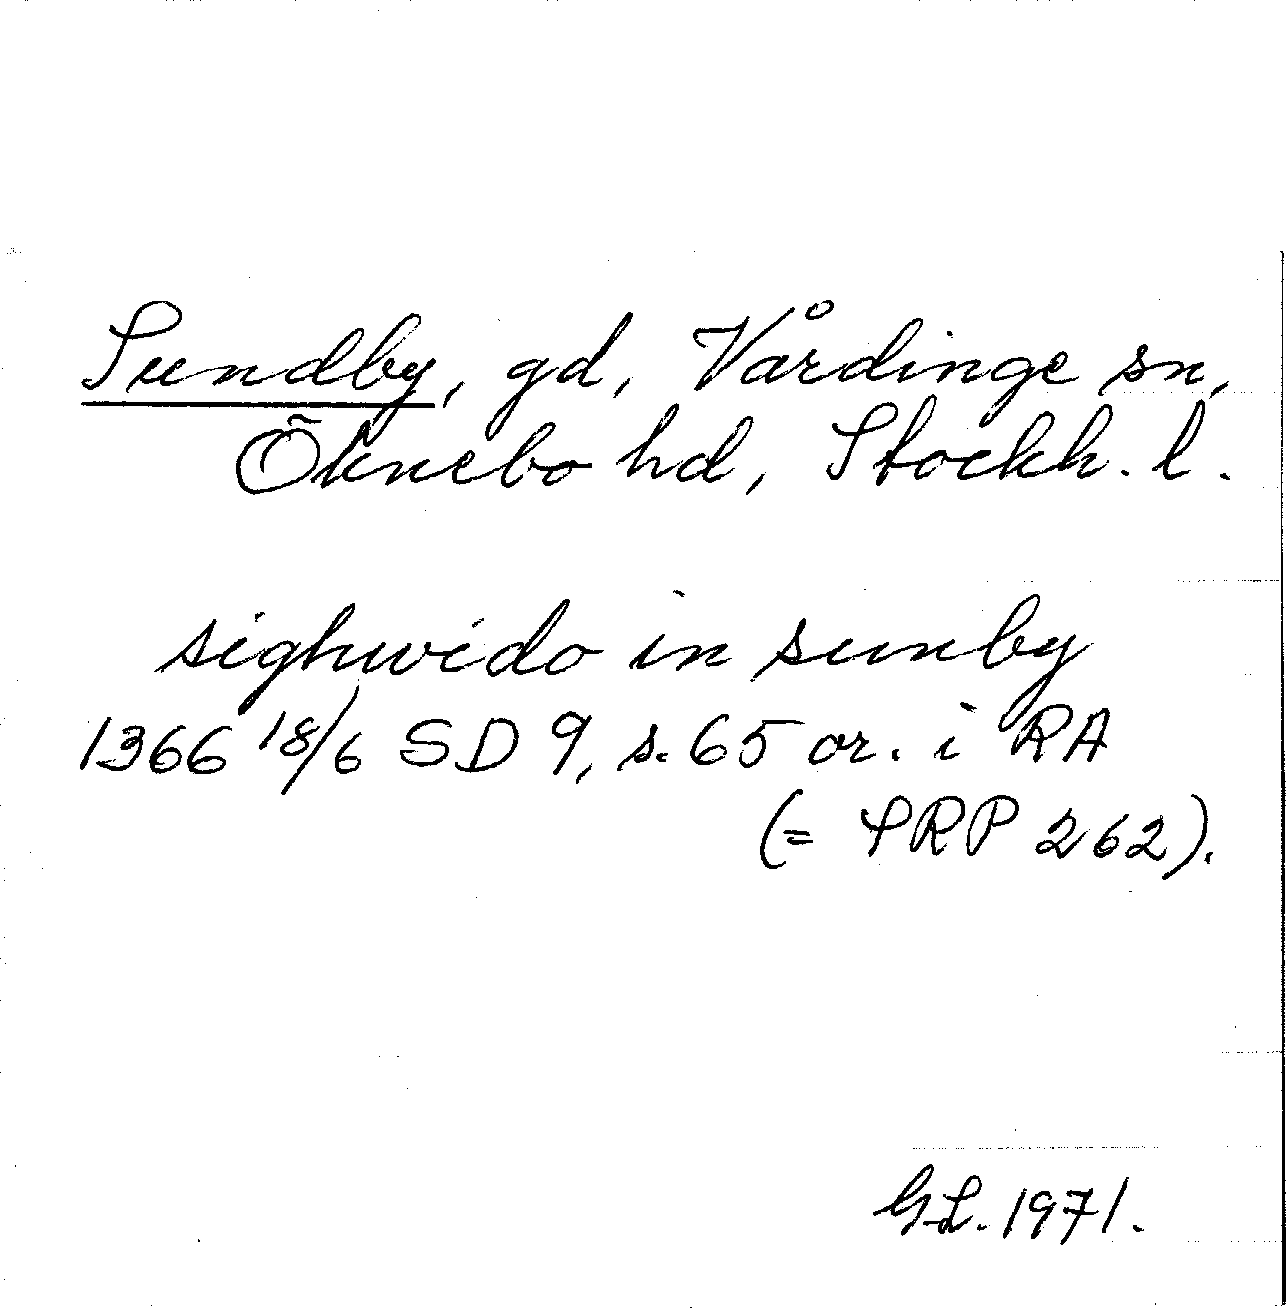 Sundby, gd, Vårdinge sn,
Öknebo hd, Stockh. l.
sighwido in sunby
1366 18/6 SD 9, s. 65 or. i RA
(= SRP 262).
GL. 1971.